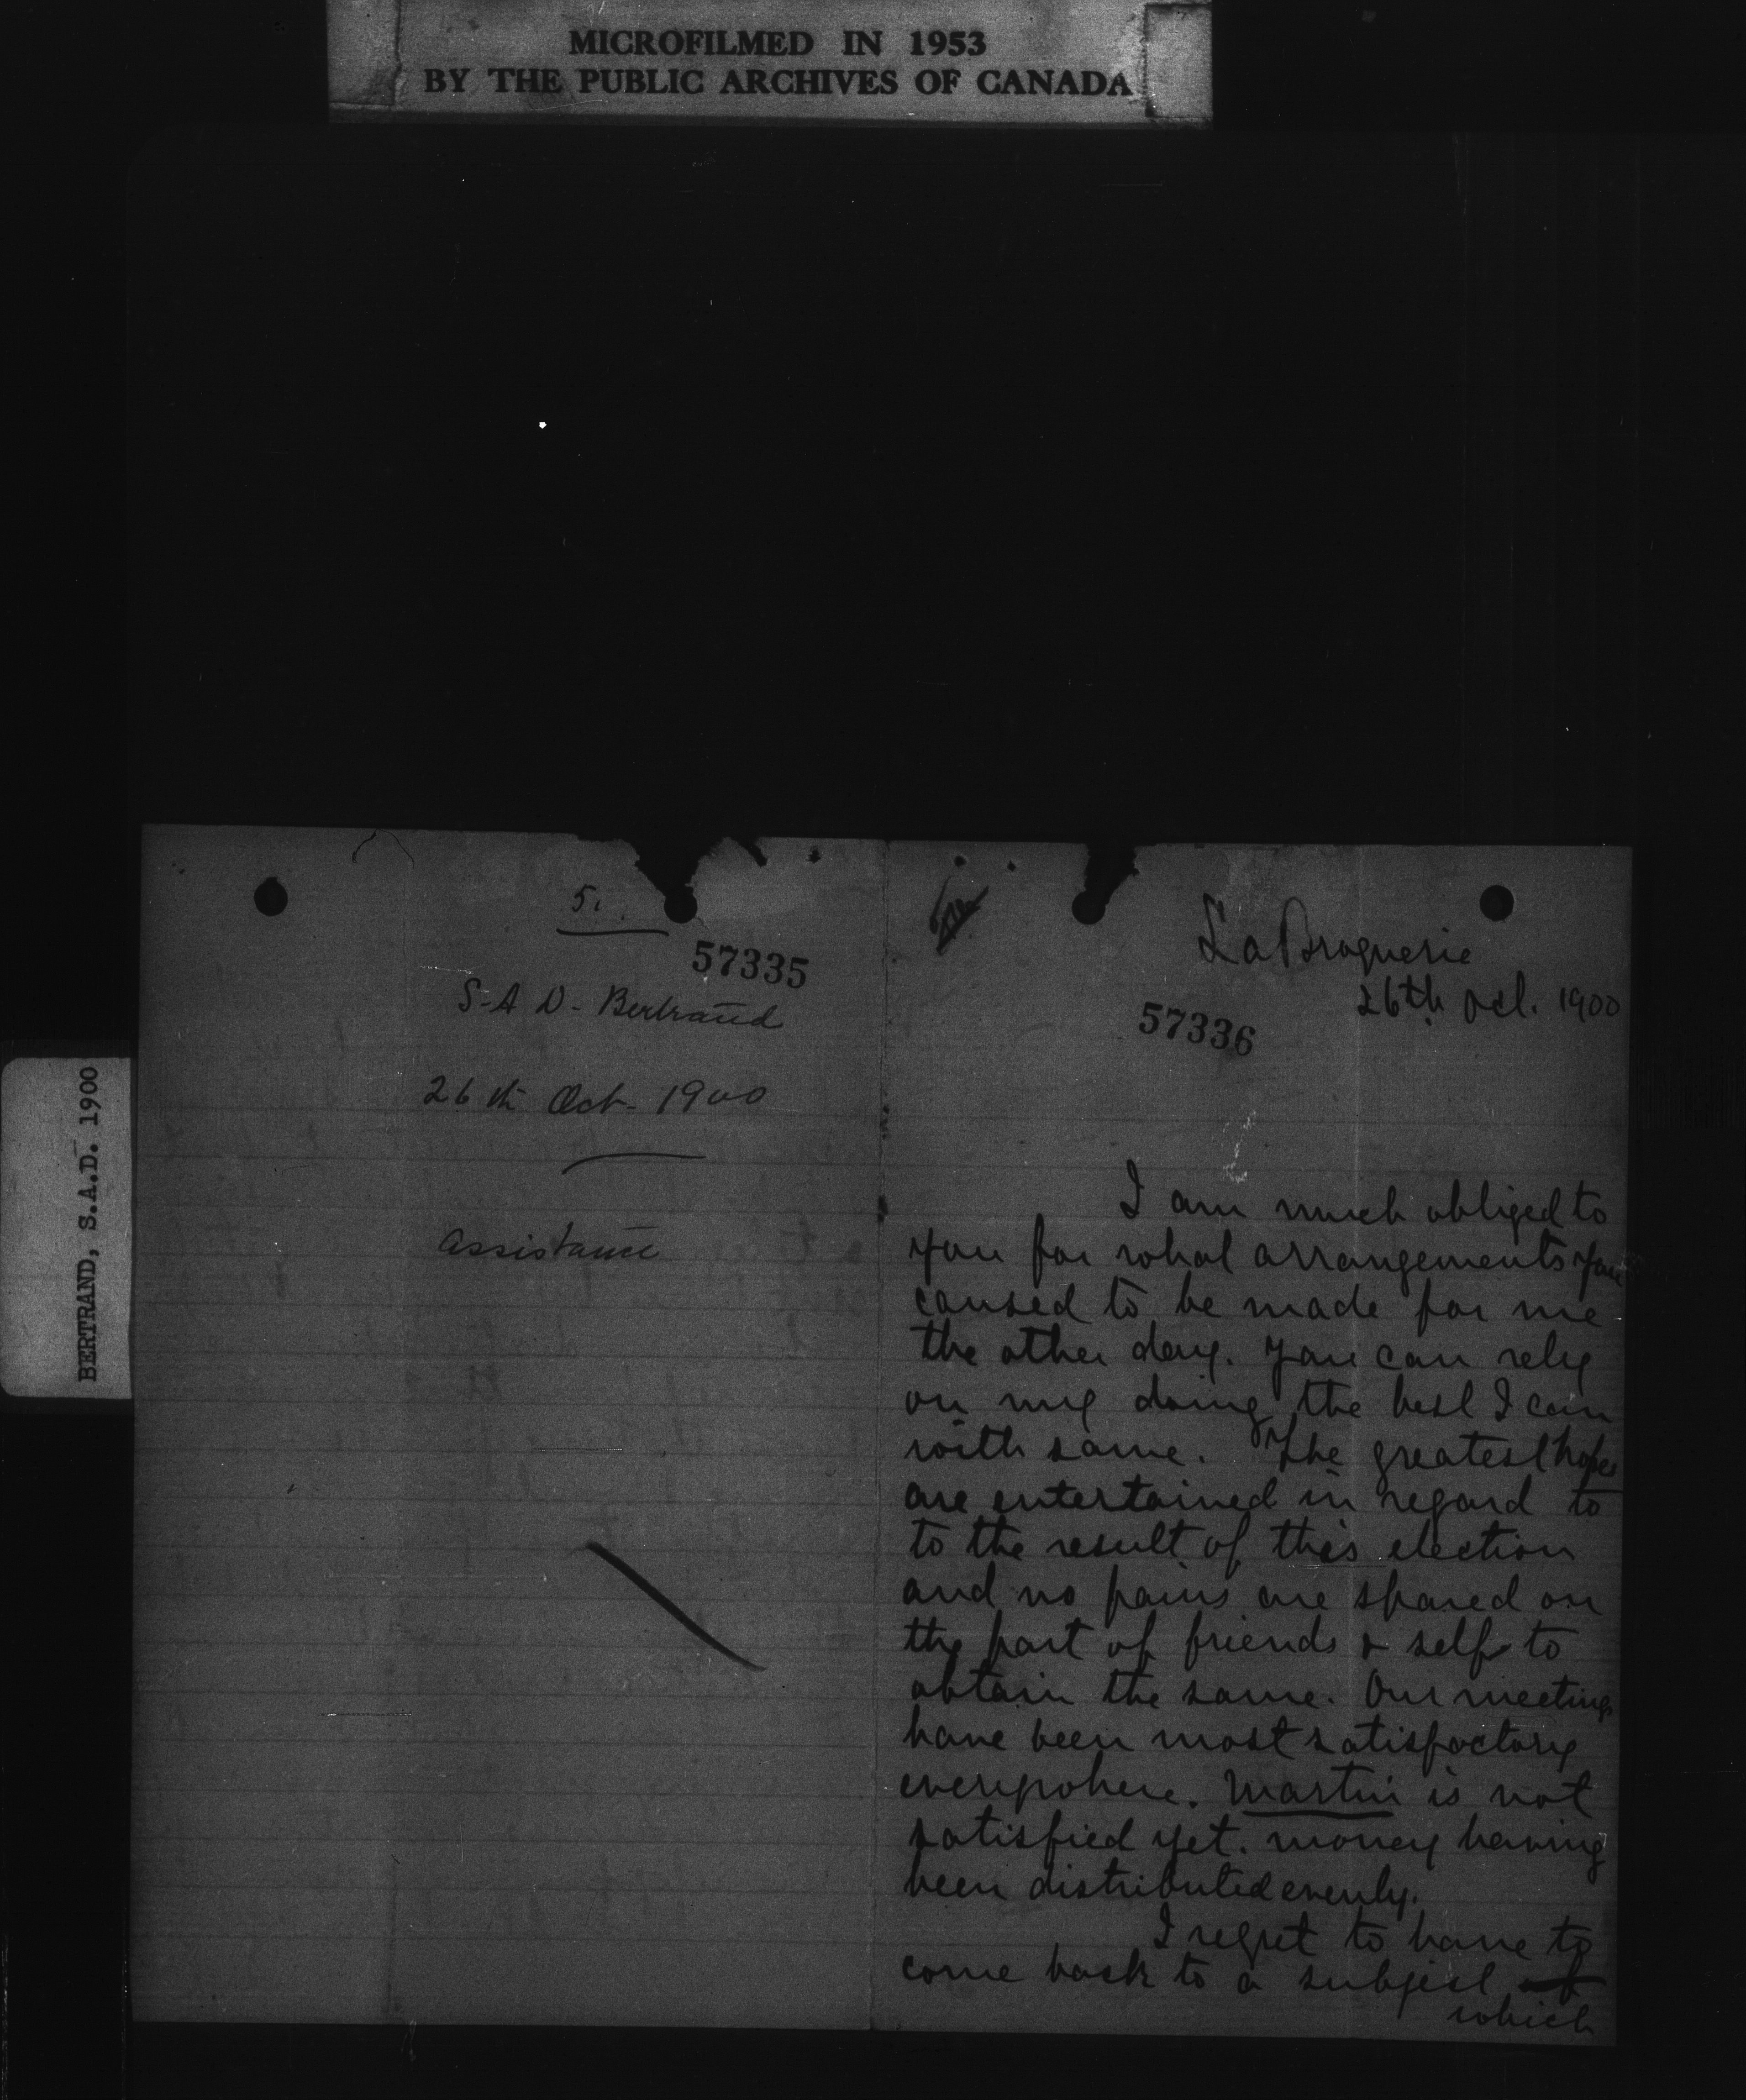 MICROFILMED IN 1953
BY THE PUBLIC ARCHIVES OF CANADA
BERTRAND, S.A.D. 1900
5.
57335
S-A D- Bertrand
26th Oct- 1900
Assistance
La Broquerie
26th Oct. 1900
57336
I am much obliged to
you for what arrangements you
caused to be made for me
the other day. You can rely
on my doing the best I can
with same. The greatest hopes
are entertained in regard to
to the result of this election
and no pains are spared on
the part of friends & self to
obtain the same. Our meetings
have been most satisfactory
everywhere. Martin is not
satisfied yet. money having
been distributed evenly.
I regret to have to
come back to a subject of
which